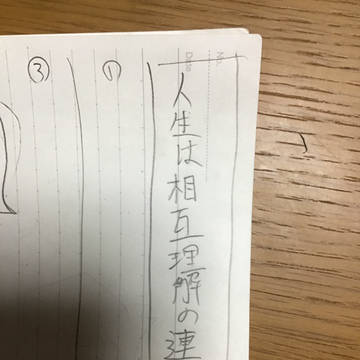 人生は相互理解の連
①
③